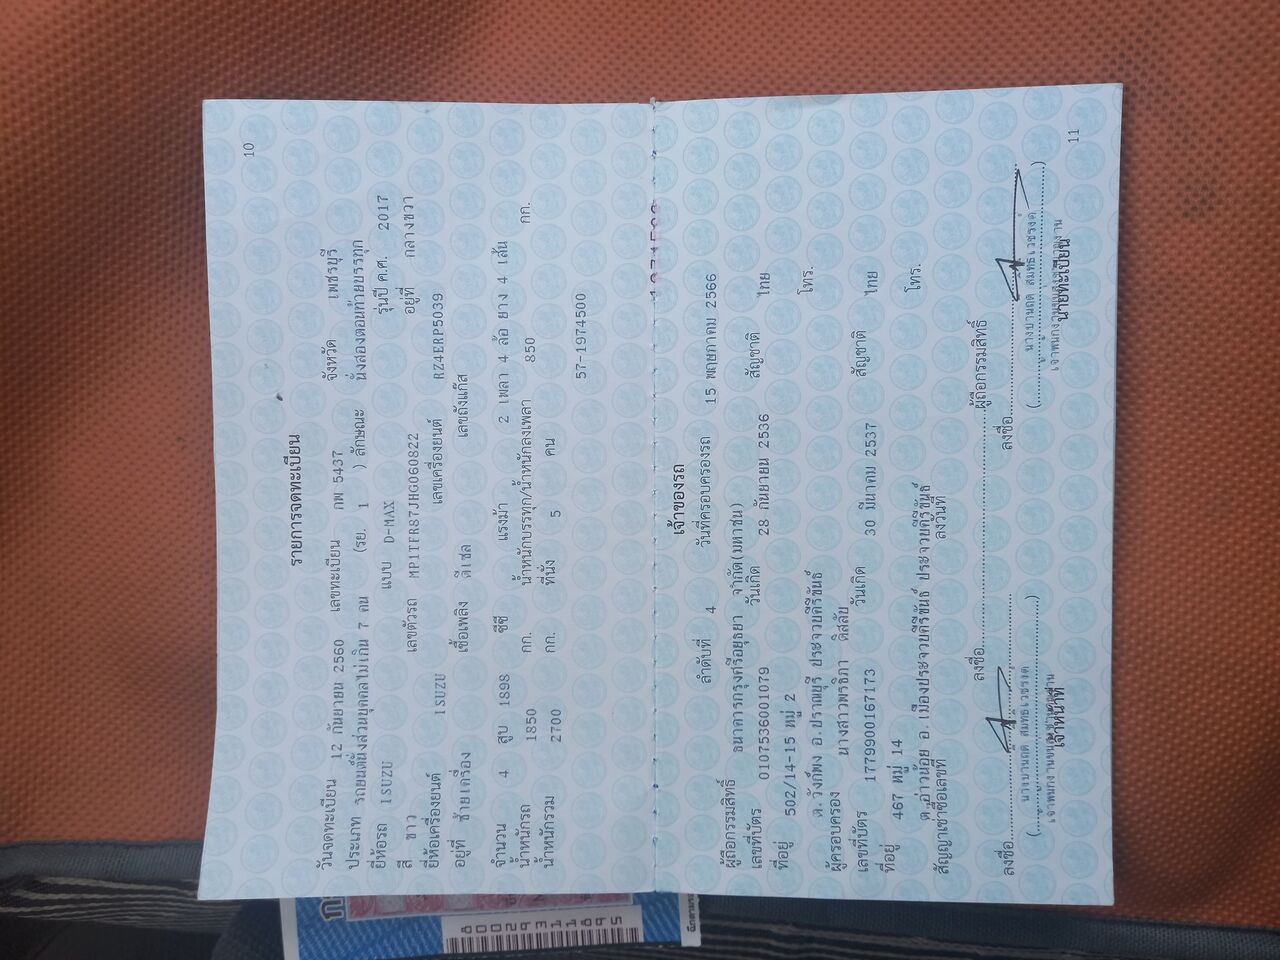 10
รายการจดทะเบียน
วันจดทะเบียน 12 กันยายน 2560 เลขทะเบียน กพ 5437 จังหวัด เพชรบุรี
ประเภท รถยนต์นั่งส่วนบุคคลไม่เกิน 7 คน (รย. 1 ) ลักษณะ นั่งสองตอนท้ายบรรทุก
ยี่ห้อรถ ISUZU แบบ D-MAX รุ่นปี ค.ศ. 2017
สี ขาว เลขตัวรถ MP1TFR87JHG060822 อยู่ที่ กลางขวา
ยี่ห้อเครื่องยนต์ ISUZU เลขเครื่องยนต์ RZ4ERP5039
อยู่ที่ ซ้ายเครื่อง เชื้อเพลิง ดีเซล เลขถังแก๊ส
จำนวน 4 สูบ 1898 ซีซี แรงม้า 2 เพลา 4 ล้อ ยาง 4 เส้น
น้ำหนักรถ 1850 กก. น้ำหนักบรรทุก/น้ำหนักลงเพลา 850 กก.
น้ำหนักรวม 2700 กก. ที่นั่ง 5 คน
57-1974500
เจ้าของรถ
ลำดับที่ 4 วันที่ครอบครองรถ 15 พฤษภาคม 2566
ผู้ถือกรรมสิทธิ์ ธนาคารกรุงศรีอยุธยา จำกัด(มหาชน)
เลขที่บัตร 0107536001079 วันเกิด 28 กันยายน 2536 สัญชาติ ไทย
ที่อยู่ 502/14-15 หมู่ 2 โทร.
ต.วังก์พง อ.ปราณบุรี ประจวบคีรีขันธ์
ผู้ครอบครอง นางสาวพรธิภา ดิสลับ
เลขที่บัตร 1779900167173 วันเกิด 30 มีนาคม 2537 สัญชาติ ไทย
ที่อยู่ 467 หมู่ 14 โทร.
ต.อ่าวน้อย อ.เมืองประจวบคีรีขันธ์ ประจวบคีรีขันธ์
สัญญาเช่าซื้อเลขที่ ลงวันที่
ลงชื่อ ผู้ถือกรรมสิทธิ์
ลงชื่อ ลงชื่อ
เจ้าหน้าที่ นายทะเบียน
11